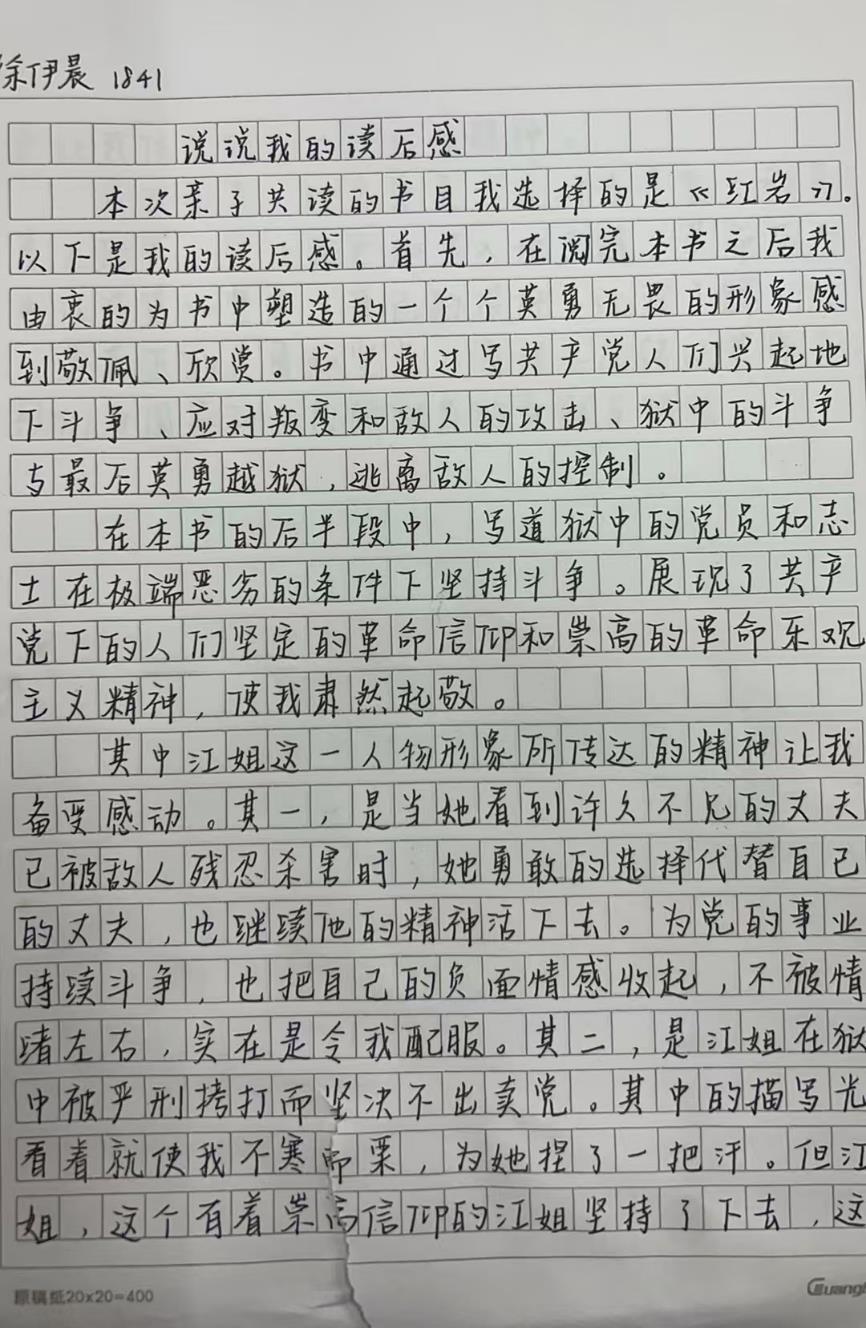 徐伊晨 1841
说说我的读后感
本次亲子共读的书目我选择的是《红岩》。
以下是我的读后感。首先，在阅完本书之后我
由衷的为书中塑造的一个个英勇无畏的形象感
到敬佩、欣赏。书中通过写共产党人们兴起地
下斗争、应对叛变和敌人的攻击、狱中的斗争
与最后英勇越狱，逃离敌人的控制。
在本书的后半段中，写道狱中的党员和志
士在极端恶劣的条件下坚持斗争。展现了共产
党下的人们坚定的革命信仰和崇高的革命乐观
主义精神，使我肃然起敬。
其中江姐这一人物形象所传达的精神让我
备受感动。其一，是当她看到许久不见的丈夫
已被敌人残忍杀害时，她勇敢的选择代替自己
的丈夫，也继续他的精神活下去。为党的事业
持续斗争，也把自己的负面情感收起，不被情
绪左右，实在是令我配服。其二，是江姐在狱
中被严刑拷打而坚决不出卖党。其中的描写光
看着就使我不寒而栗，为她捏了一把汗。但江
姐，这个有着崇高信仰的江姐坚持了下去，这
原稿纸20x20=400